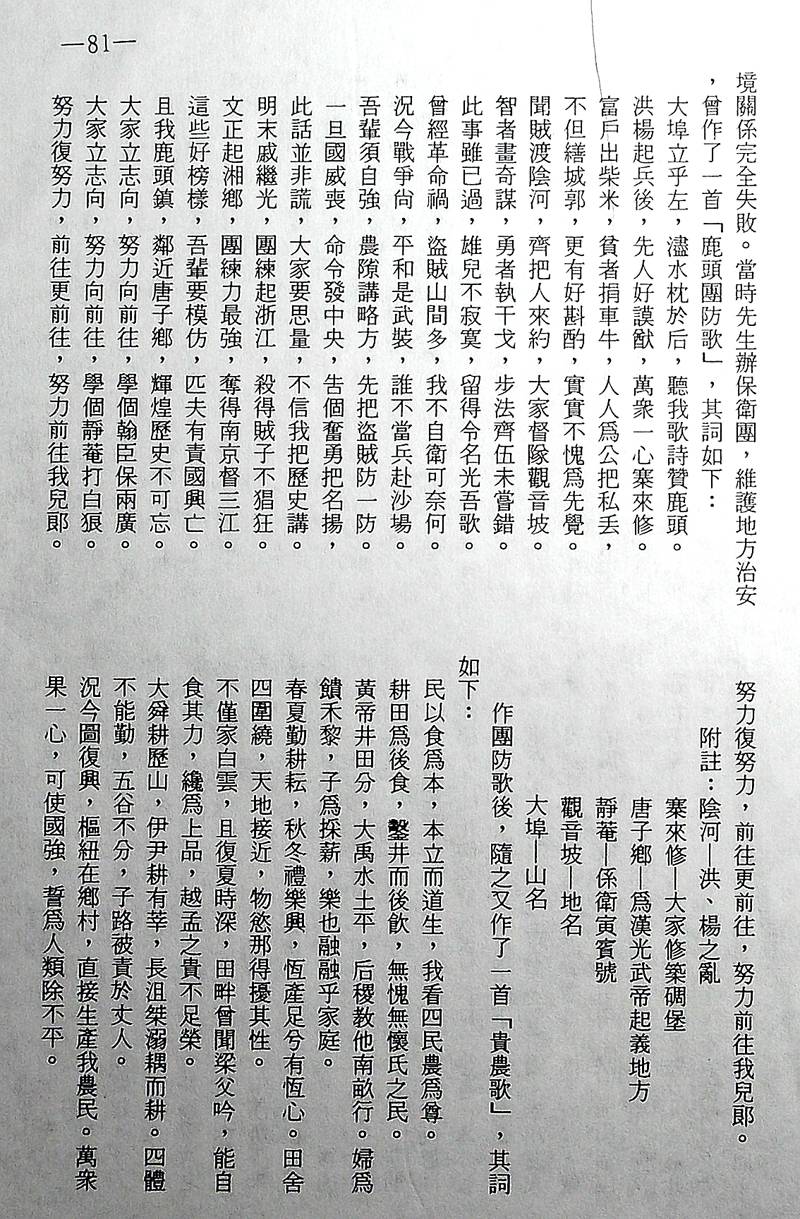 —81—
境關係完全失敗。當時先生辦保衛團，維護地方治安
，曾作了一首「鹿頭團防歌」，其詞如下：
大埠立乎左，濜水枕於后，聽我歌詩贊鹿頭。
洪楊起兵後，先人好謨猷，萬衆一心寨來修。
富戶出柴米，貧者捐車牛，人人爲公把私丢，
不但繕城郭，更有好斟酌，實實不愧爲先覺。
聞賊渡陰河，齊把人來約，大家督隊觀音坡。
智者畫奇謀，勇者執干戈，步法齊伍未嘗錯。
此事雖已過，雄兒不寂寞，留得令名光吾歌。
曾經革命禍，盜賊山間多，我不自衛可奈何。
況今戰爭尙，平和是武裝，誰不當兵赴沙場。
吾輩須自強，農隙講略方，先把盜賊防一防。
一旦國威喪，命令發中央，吿個奮勇把名揚，
此話並非謊，大家要思量，不信我把歷史講。
明末戚繼光，團練起浙江，殺得賊子不猖狂。
文正起湘鄉，團練力最強，奪得南京督三江。
這些好榜樣，吾輩要模仿，匹夫有責國興亡。
且我鹿頭鎮，鄰近唐子鄉，輝煌歷史不可忘。
大家立志向，努力向前往，學個翰臣保兩廣。
大家立志向，努力向前往，學個靜菴打白狼。
努力復努力，前往更前往，努力前往我兒郞。
努力復努力，前往更前往，努力前往我兒郞。
附註：陰河—洪、楊之亂
寨來修—大家修築碉堡
唐子鄉—爲漢光武帝起義地方
靜菴—係衛寅賓號
觀音坡—地名
大埠—山名
作團防歌後，隨之又作了一首「貴農歌」，其詞
如下：
民以食爲本，本立而道生，我看四民農爲尊。
耕田爲後食，鑿井而後飮，無愧無懷氏之民。
黃帝井田分，大禹水土平，后稷教他南畝行。婦爲
饋禾黎，子爲採薪，樂也融融乎家庭。
春夏勤耕耘，秋冬禮樂興，恆產足兮有恆心。田舍
四圍繞，天地接近，物慾那得擾其性。
不僅家白雲，且復夏時深，田畔曾聞梁父吟，能自
食其力，纔爲上品，越孟之貴不足榮。
大舜耕歷山，伊尹耕有莘，長沮桀溺耦而耕。四體
不能勤，五谷不分，子路被責於丈人。
況今圖復興，樞紐在鄉村，直接生產我農民。萬衆
果一心，可使國強，誓爲人類除不平。